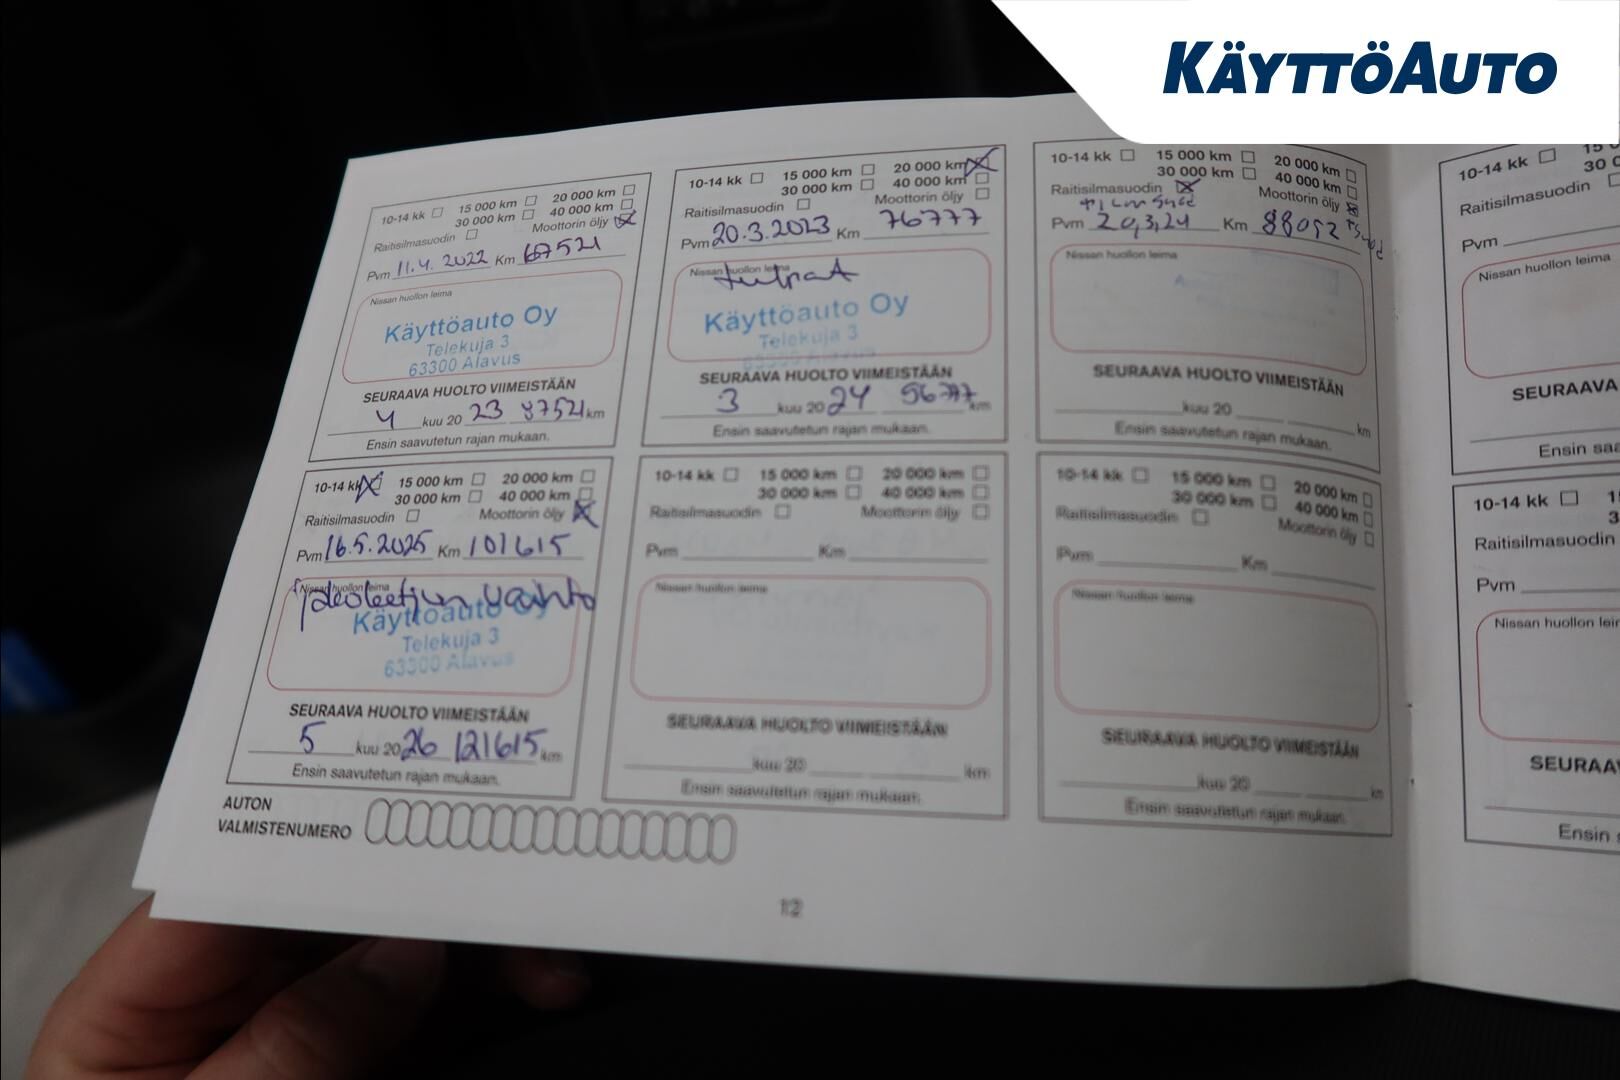 KÄYTTÖAUTO
10-14 kk 15 000 km 20 000 km
30 000 km 40 000 km
Raitisilmasuodin Moottorin öljy
Pvm 11.4.2022 Km 67521
Nissan huollon leima
Käyttöauto Oy
Telekuja 3
63300 Alavus
SEURAAVA HUOLTO VIIMEISTÄÄN
4 kuu 20 23 87521 km
Ensin saavutetun rajan mukaan.
10-14 kk 15 000 km 20 000 km
30 000 km 40 000 km
Raitisilmasuodin Moottorin öljy
Pvm 20.3.2023 Km 76777
Nissan huollon leima
tulpat
Käyttöauto Oy
Telekuja 3
63300 Alavus
SEURAAVA HUOLTO VIIMEISTÄÄN
3 kuu 20 24 96777 km
Ensin saavutetun rajan mukaan.
10-14 kk 15 000 km 20 000 km
30 000 km 40 000 km
Raitisilmasuodin Moottorin öljy
Pvm 20,3,24 Km 88092
Nissan huollon leima
SEURAAVA HUOLTO VIIMEISTÄÄN
kuu 20 km
Ensin saavutetun rajan mukaan.
10-14 kk 15 000 km 20 000 km
30 000 km 40 000 km
Raitisilmasuodin Moottorin öljy
Pvm 16.5.2025 Km 101615
Nissan huollon leima
vaihto
Käyttöauto Oy
Telekuja 3
63300 Alavus
SEURAAVA HUOLTO VIIMEISTÄÄN
5 kuu 20 26 121615 km
Ensin saavutetun rajan mukaan.
10-14 kk 15 000 km 20 000 km
30 000 km 40 000 km
Raitisilmasuodin Moottorin öljy
Pvm Km
Nissan huollon leima
SEURAAVA HUOLTO VIIMEISTÄÄN
kuu 20 km
Ensin saavutetun rajan mukaan.
10-14 kk 15 000 km 20 000 km
30 000 km 40 000 km
Raitisilmasuodin Moottorin öljy
Pvm Km
Nissan huollon leima
SEURAAVA HUOLTO VIIMEISTÄÄN
kuu 20 km
Ensin saavutetun rajan mukaan.
AUTON
VALMISTENUMERO
12
10-14 kk
Raitisilmasuodin
Pvm
Nissan huollon leima
SEURAAVA
Ensin
10-14 kk
Raitisilmasuodin
Pvm
Nissan huollon
Ensin